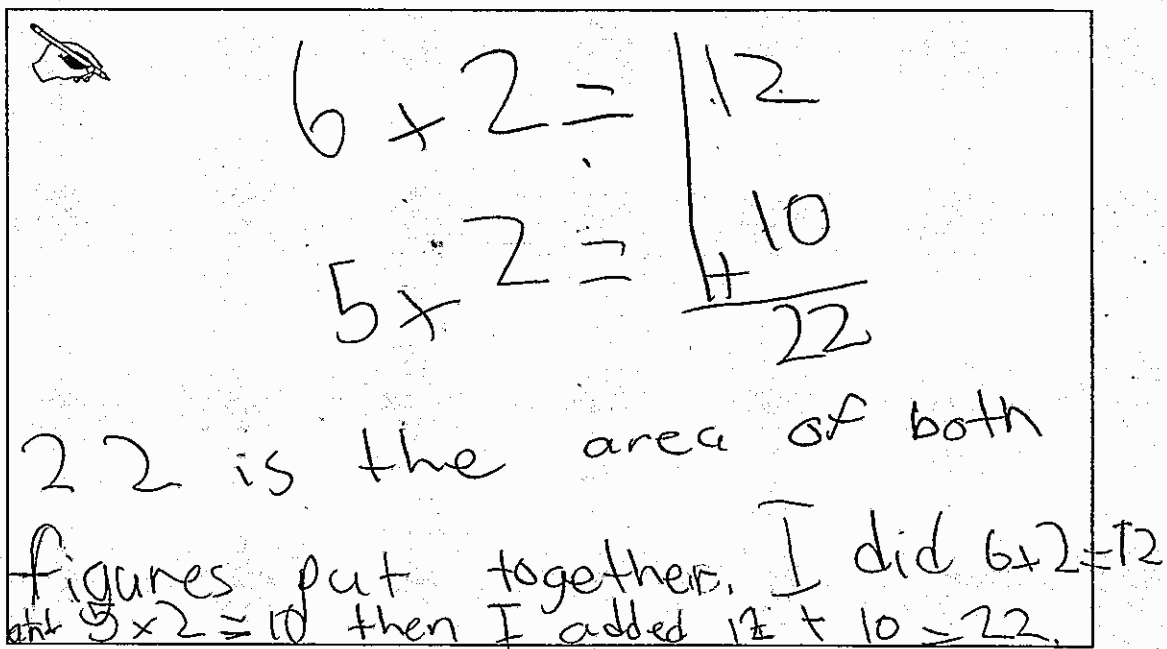 6 x 2 = 12
5 x 2 = + 10
22
22 is the area of both
figures put together. I did 6x2=12
and 5 x 2 = 10 then I added 12 + 10 = 22.